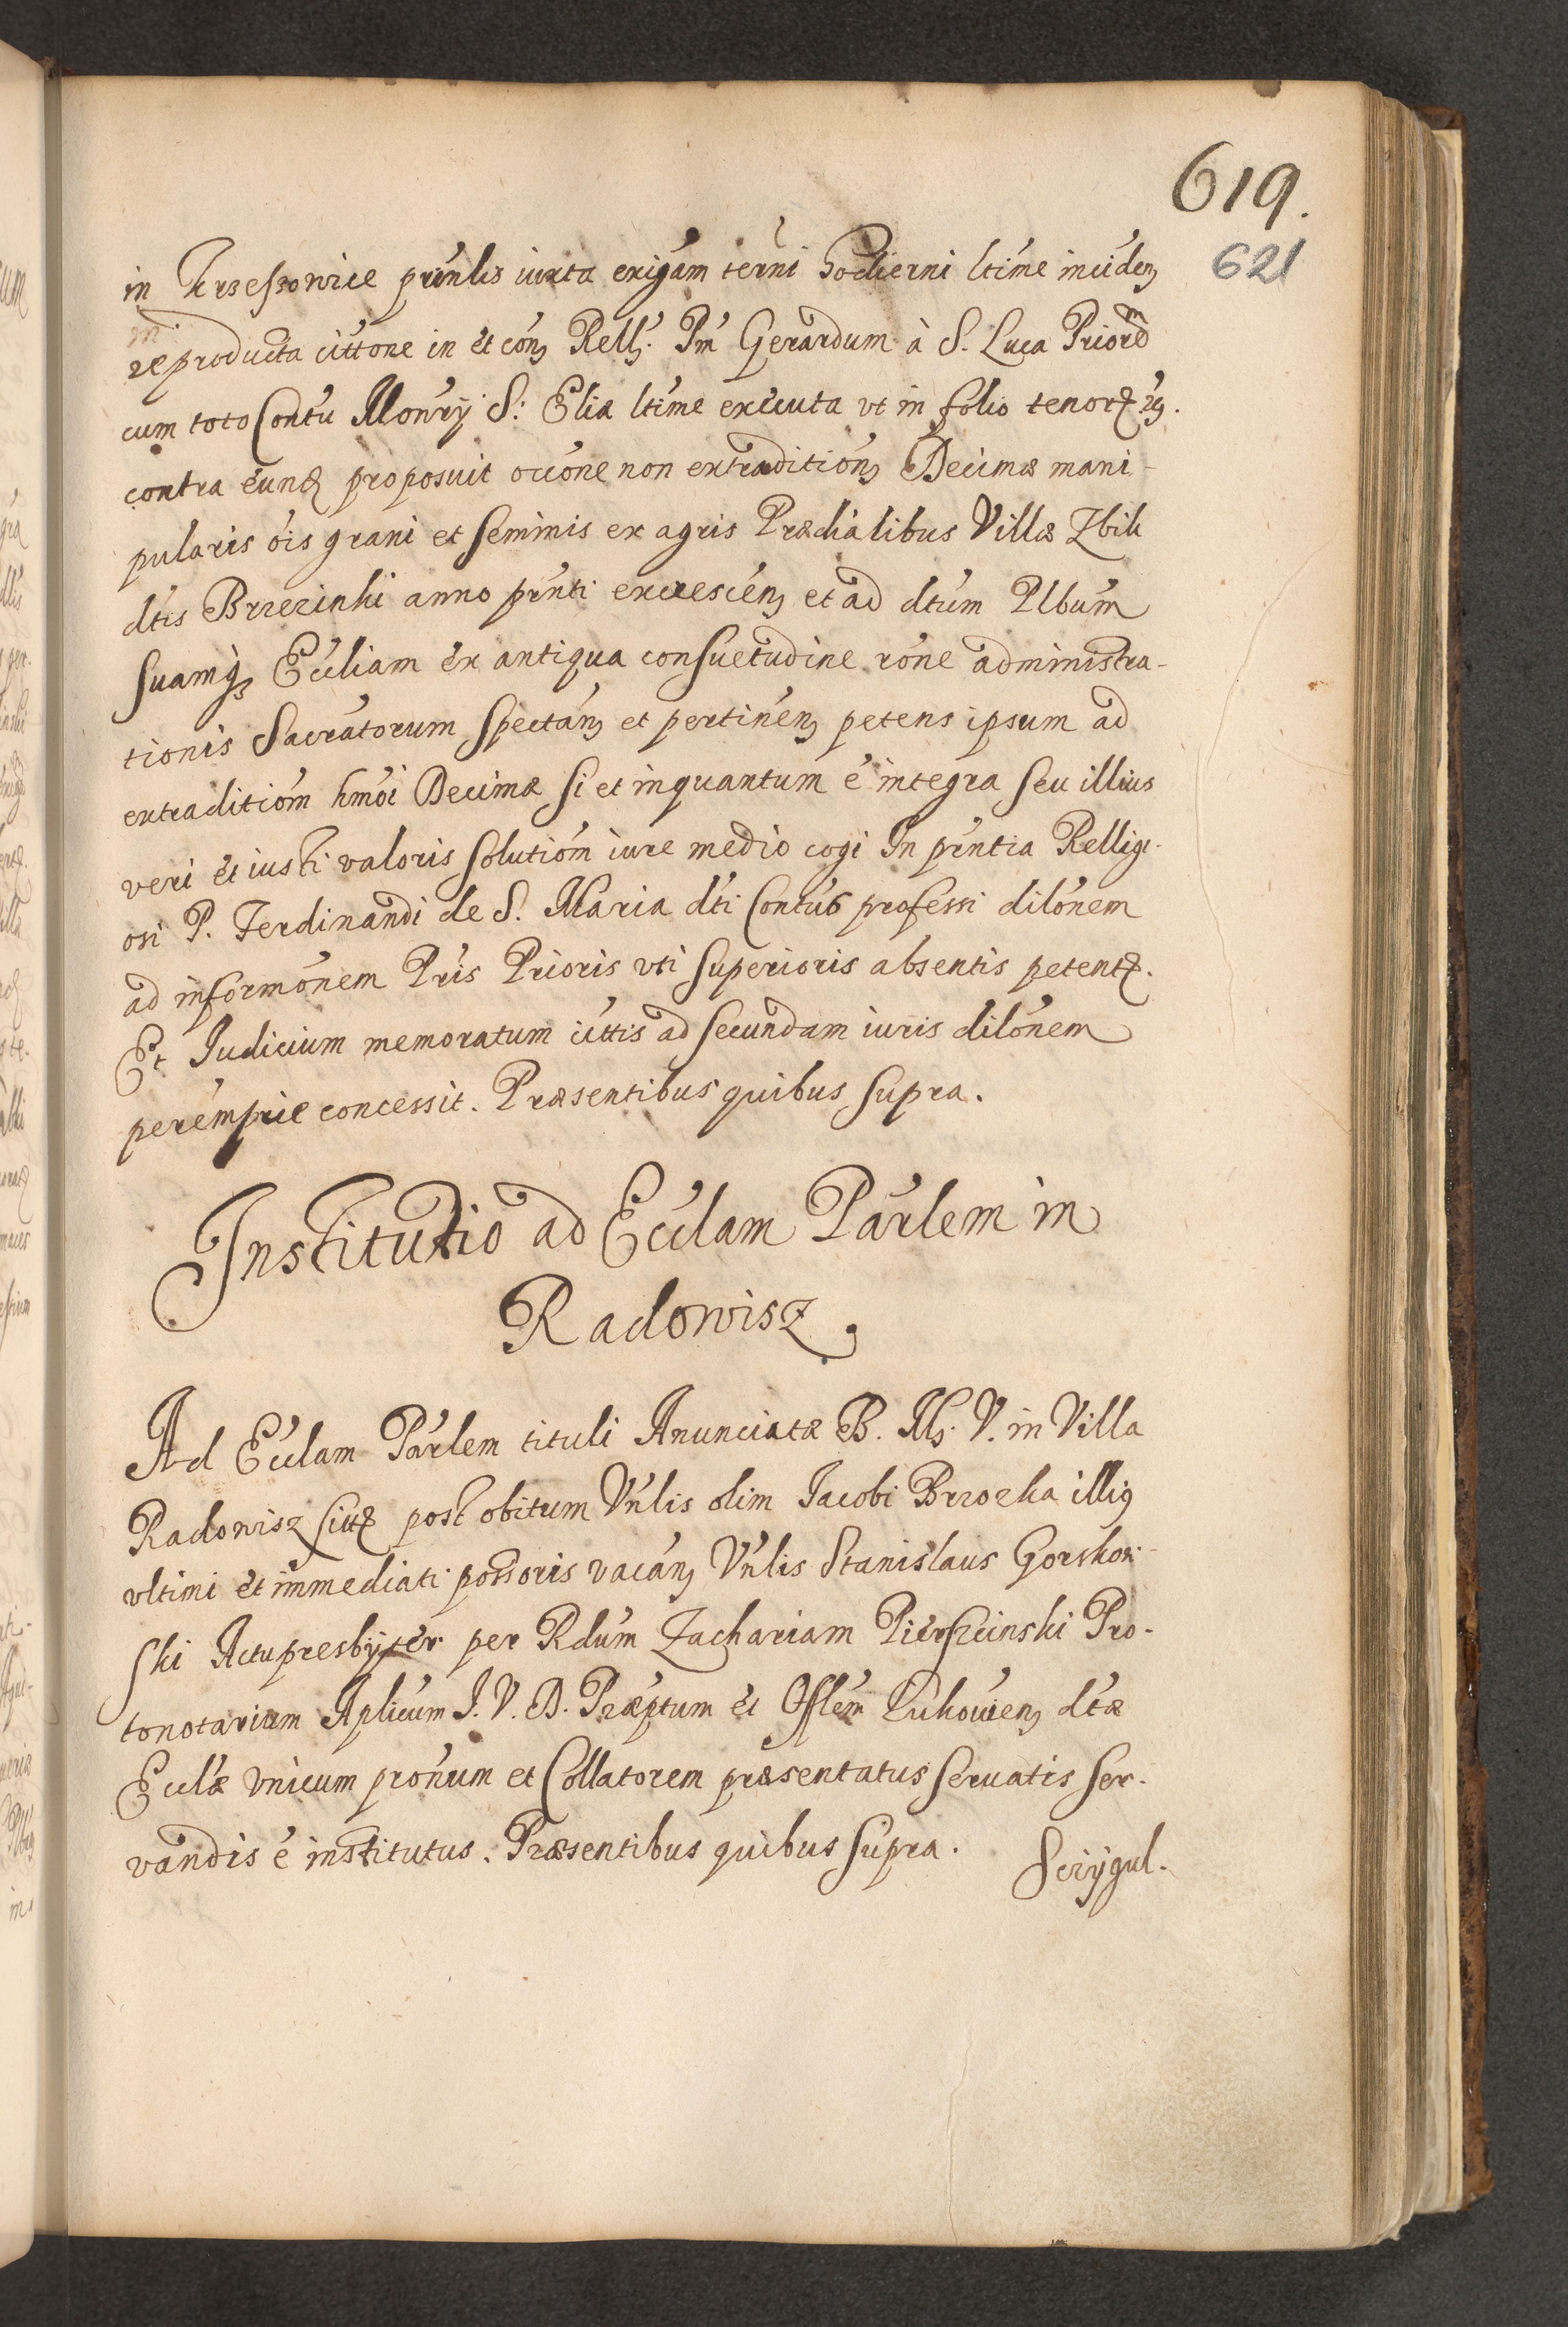 619.
621
in Krzeszowice prinlis iuxta exigām termi hodierni ltime inciden
reproducta citтone in et con Rell. Pm Gerardum à S. Luca Priorem
cum toto Contu Monrÿ S: Eliæ ltime executa vt in folio tenor
contra eund proposuit occone non extradition Decimæ mani-
pularis ois grani et seminis ex agris Prædialibus Villæ Zbik
dtis Brzezinki anno pnti excrescen et ad dtum Plbum
suamq Eccliam ex antiqua consuetudine rone administra-
tionis Sacratorum spectan et pertinen petens ipsum ad
extraditiom hmoi Decimæ si et inquantum e integra seu illius
veri et iusti valoris solutiom iure medio cogi In pntia Religi-
osi P. Ferdinandi de S. Maria dti Contus professi dilonem
ad informonem Pris Prioris vti Superioris absentis petent.
Et Iudicium memoratum cittis ad secundam iuris dilonem
peremprie concessit. Præsentibus quibus supra.
Institutio ad Ecclam Parlem in
Radowisz.
Ad Ecclam Parlem tituli Anunciatæ B. M. V. in Villa
Radowisz sitt post obitum Vnlis olim Iacobi Brzozka illig
vltimi et immediati possoris vacan Vnlis Stanislaus Gorskow-
ski Actupresbÿter per Rdum Zachariam Pierszcinski Pro-
tonotarium Aplicum I. V. D. Præptum et Offlem Pilicen dtæ
Ecclæ vnicum pronum et Collatorem præsentatus seruatis ser-
vandis e institutus. Præsentibus quibus supra. Scizÿgul.